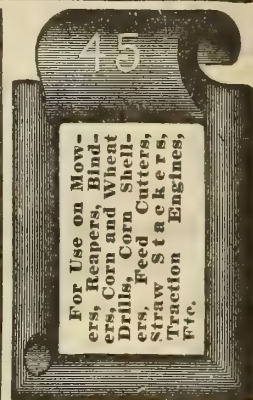 45
For Use on Mow-
ers, Reapers, Bind-
ers, Corn and Wheat
Drills, Corn Shell-
ers, Feed Cutters,
Straw Stackers,
Traction Engines,
Etc.